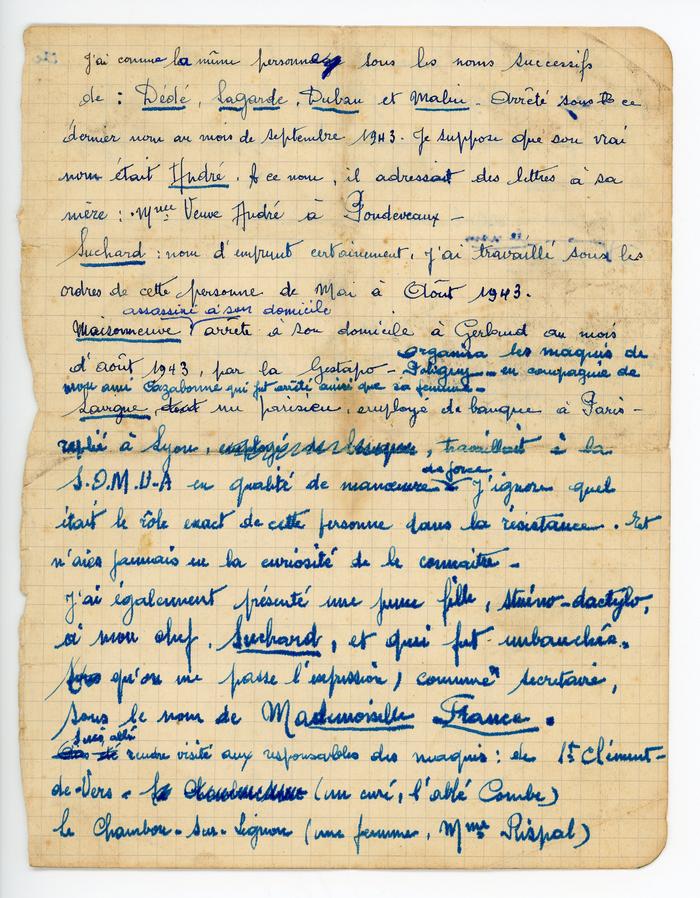 J'ai connue la même personne sous les noms successifs
de : Dédé, Lagarde, Duban et Malin - Arrêté sous ce
dernier nom au mois de Septembre 1943. Je suppose que son vrai
nom était André. A ce nom, il adressait des lettres à sa
mère : Mme Veuve André à Pondeveaux -
Suchard : nom d'emprunt certainement, j'ai travaillé sous les
ordres de cette personne de Mai à Août 1943.
assassiné à son domicile
Maisonneuve arrêté à son domicile à Gerland au mois
organisa les maquis de
d'août 1943, par la Gestapo - Poligny - en compagnie de
mon ami Cazabonne qui fut arrêté ainsi que sa femme -
Lavigne, dont un parisien, employé de banque à Paris -
replié à Lyon, employé de banque, travaillait à la
de force
S.O.M.U.A en qualité de manœuvre - J'ignore quel
était le rôle exact de cette personne dans la résistance. Et
n'aies jamais eu la curiosité de le connaître -
J'ai également présenté une jeune fille, sténo-dactylo,
à mon chef, Suchard, et qui fut embauchée,
qu'on me passe l'expression) comme secrétaire,
sous le nom de Mademoiselle France.
Suis allé
rendre visite aux responsables des maquis : de St Clément-
de-Vers - (un curé, l'abbé Combe)
le Chambon-sur-Lignon (une femme, Mme Rispal)